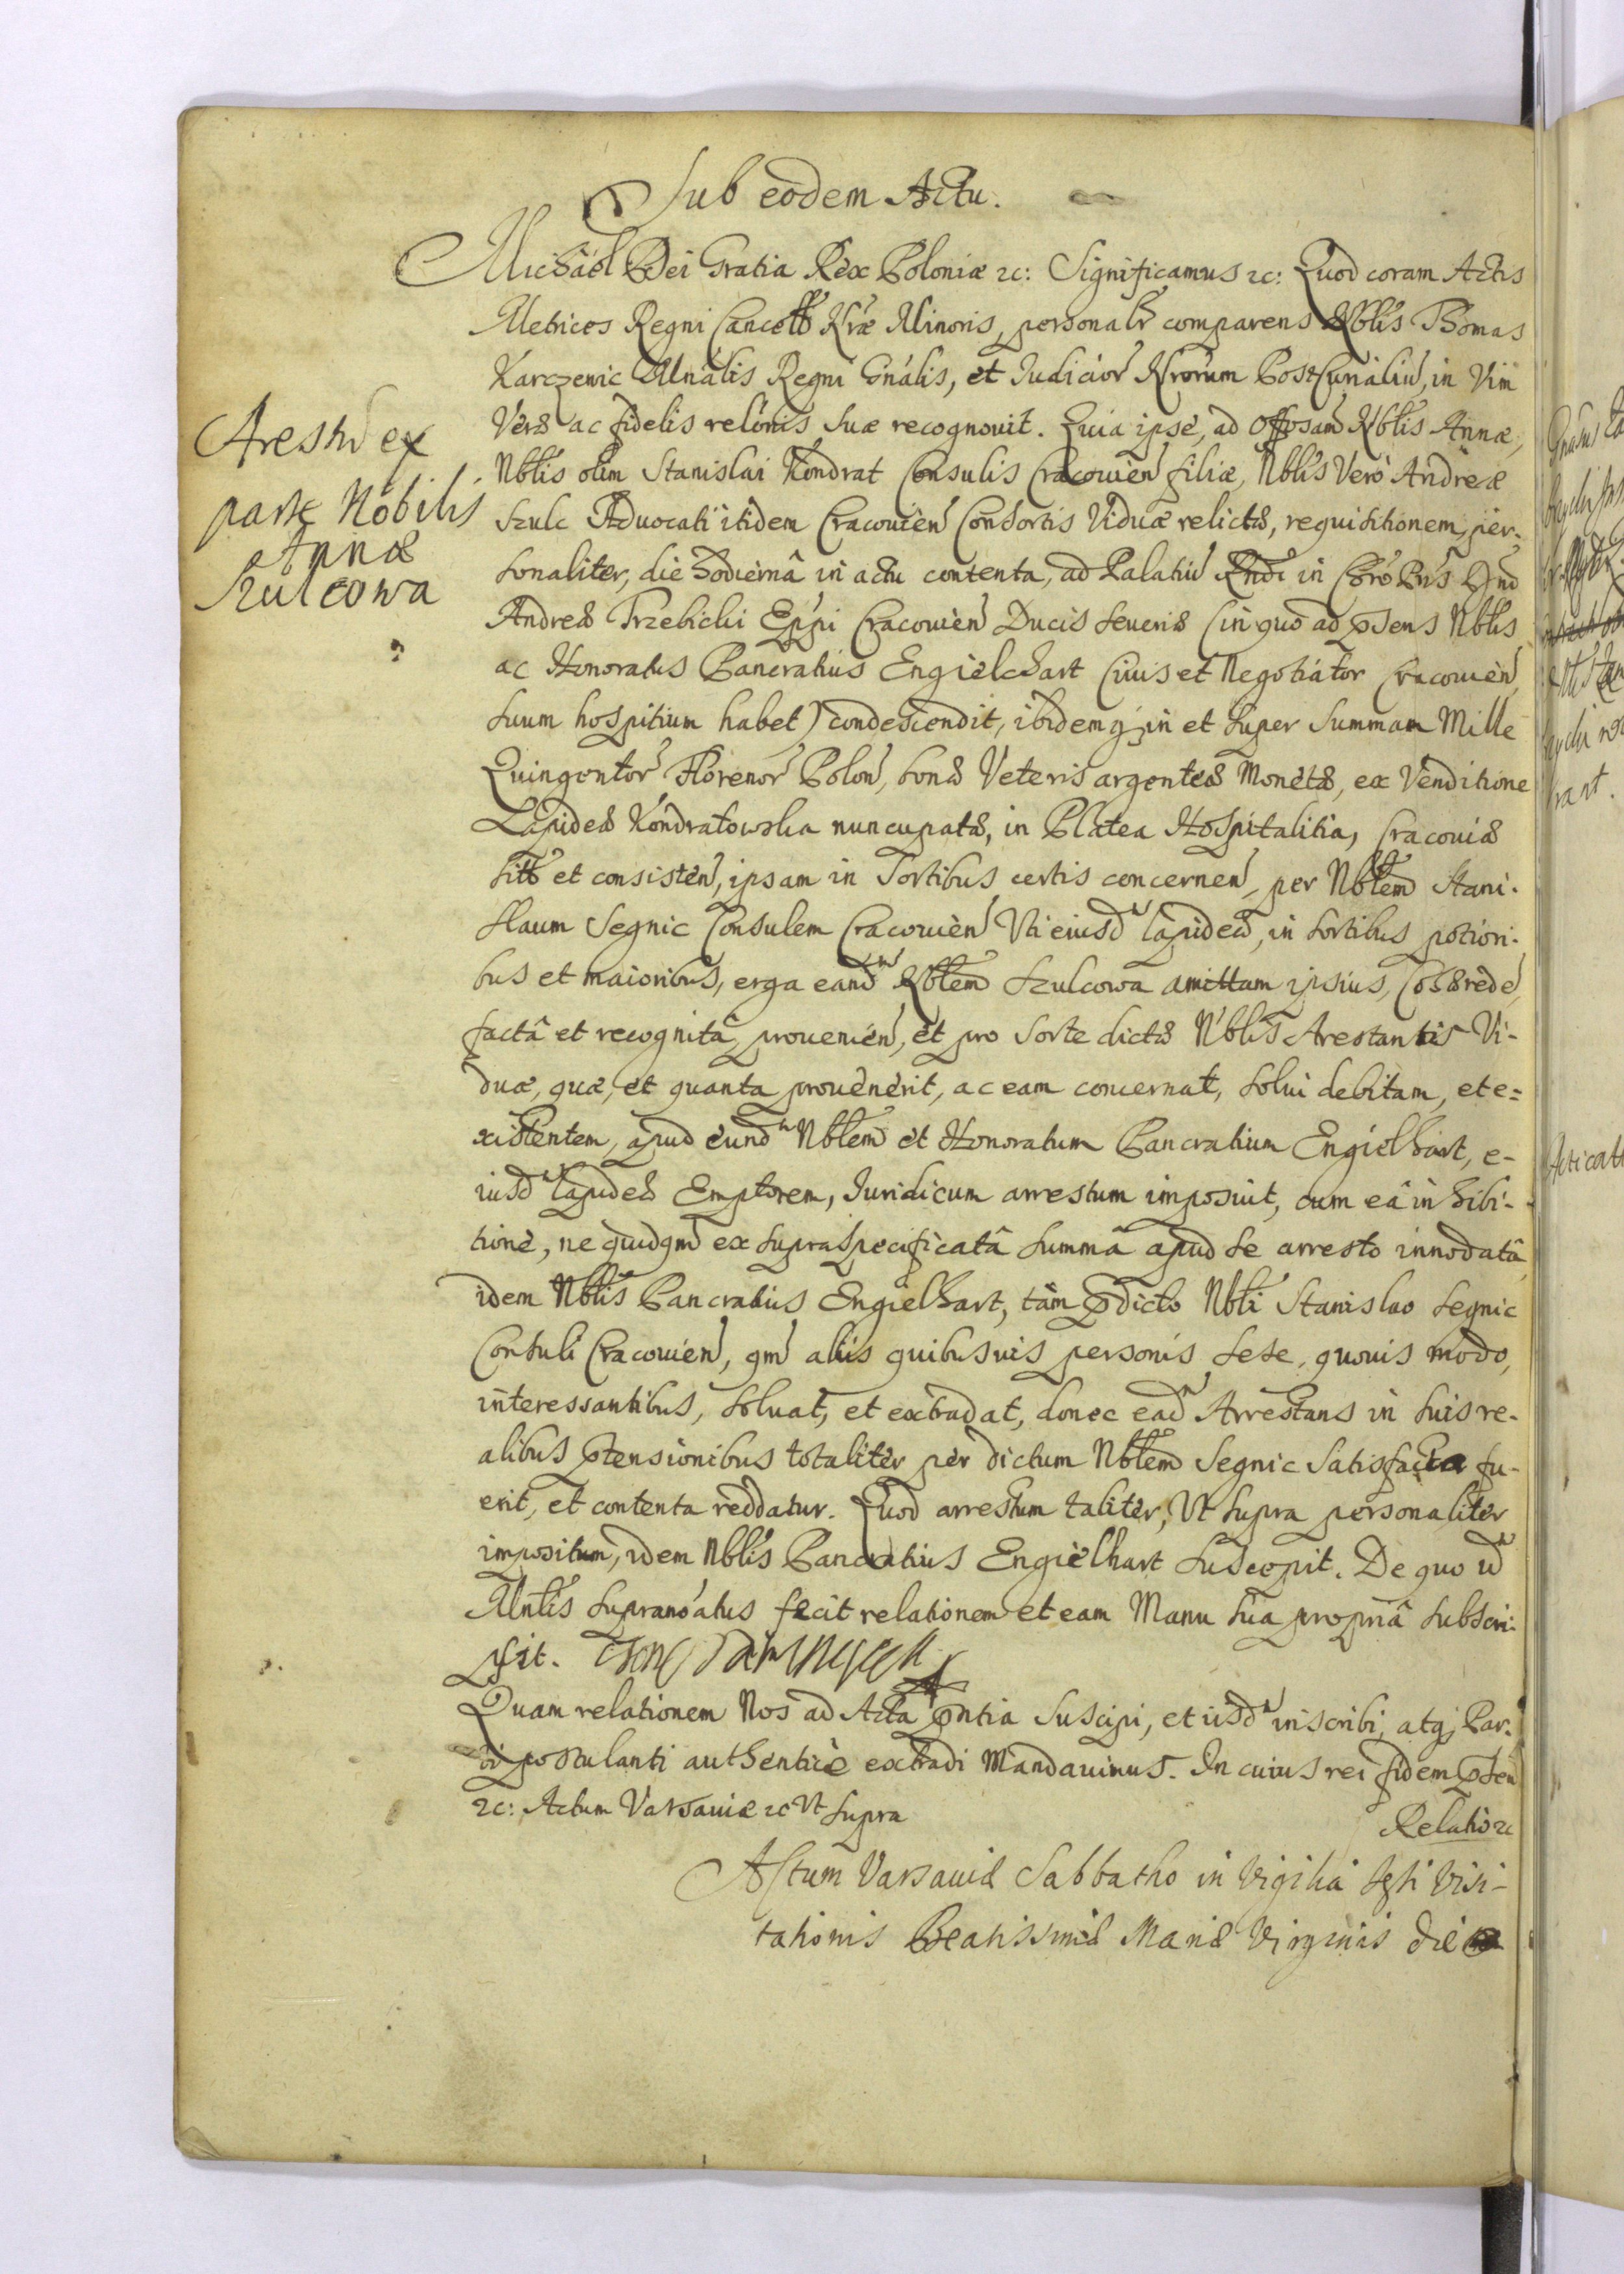 Sub eodem Actu.
Michaël Dei Gratia Rex Poloniæ 2c: Significamus 2c: Quod coram Actis
Metrices Regni Cancell Nræ Minoris, personalr comparens Nblis Thomas
Karczewic Mnalis Regni Gnalis, et Iudicior Nrorum PostCurialiu, in Vim
Veræ ac fidelis relonis suæ recognouit. Quia ipse, ad Offosam Nblis Annæ,
Nblis olim Stanislai Kondrat Consulis Cracouien filiæ, Nblis Vero Andreæ
Szulc Aduocati itidem Cracouien Consortis Viduæ relictæ, requisitionem, per-
sonaliter, die hodierna in actu contenta, ad Palatiu Rndi in Chro Pris Dnd
Andreæ Trzebicki Eppi Cracouien Ducis Seueriæ (in quo ad psens Nblis
ac Honoratus Pancratius Engielchart Ciuis et Negotiator Cracouien
suum hospitium habet) condescendit, ibidemq; in et super summam Mille
Quingentor Florenor Polon, bonæ Veteris argenteæ Monetæ, ex Venditione
Lapideæ Kondratowska nuncupatæ, in Platea Hospitalitia, Cracouiæ
sitæ et consisten, ipsam in Sortibus certis concernen, per Nblem Stani-
slaum Segnic Consulem Cracouien Vti eiusd lapideæ, in sortibus potiori-
bus et maioribus, erga eand Nblem Szulcowa amittam ipsius, Cohærede,
factâ et recognitâ, prouenien, et pro sorte dictæ Nblis Arestantis Vi-
duæ, quæ, et quanta prouenerit, ac eam concernat, solui debitam, et e-
xistentem, apud eund Nblem et Honoratum Pancratium Engielhart, e-
iusd lapideæ Emptorem, Iuridicum arrestum imposuit, cum eâ inhibi-
tione, ne quidqm ex supraspecificatâ summâ apud se arresto innodatâ
idem Nblis Pancratius Engielhart, tam pdicto Nbli Stanislao Segnic
Consuli Cracouien, qm aliis quibusuis personis sese, quouis modo,
interessantibus, soluat, et extradat, donec ead Arrestans in suis re-
alibus ptensionibus totaliter per dictum Nblem Segnic Satisfacta fu-
erit, et contenta reddatur. Quod arrestum taliter, Vt supra personaliter
impositum, idem Nblis Pancratius Engielhart suscepit. De quo id
Mnlis supranoatus fecit relationem et eam Manu sua propriâ subscri-
psit.
Quam relationem Nos ad Acta pntia Suscipi, et iisd inscribi, atq; Par-
ti postulanti authentice extradi Mandauimus. In cuius rei fidem psen
2c: Actum Varsauiæ 2c Vt supra
Relatio 2c
Actum Varsauiæ Sabbatho in Vigilia festi Visi-
tationis Beatissimæ Mariæ Virginis die
Arestu ex
parte Nobilis
Annæ
Szulcowa